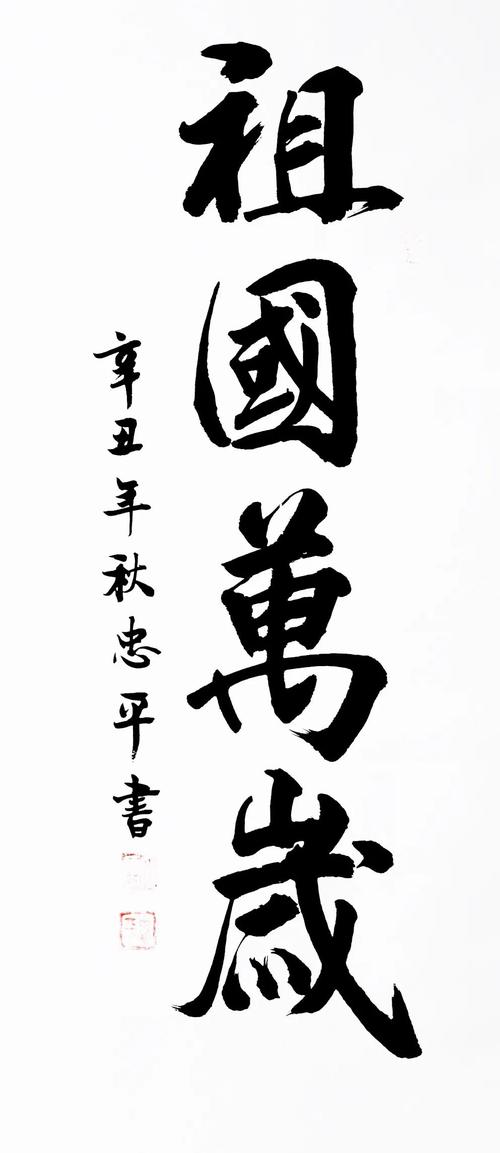 祖國萬歲
辛丑年秋忠平書